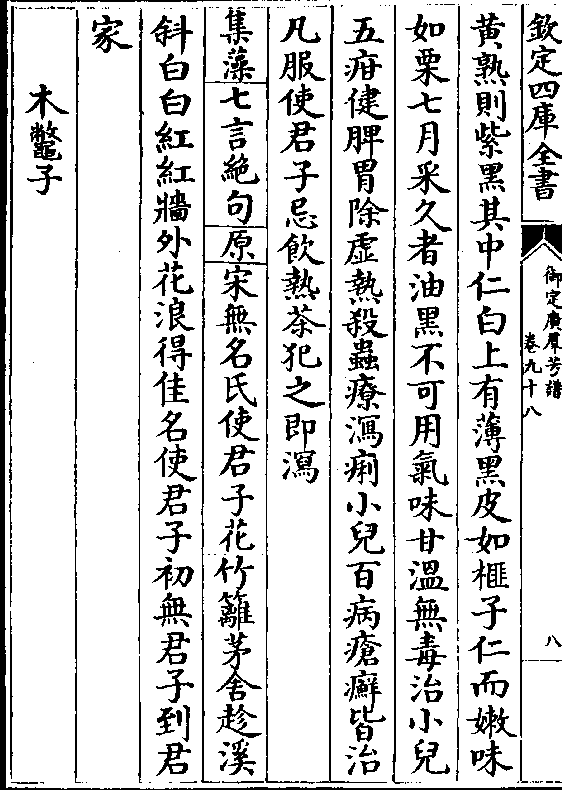 欽定四庫全書
御定廣羣芳譜
卷九十八
八
黄熟則紫黑其中仁白上有薄黑皮如榧子仁而嫩味
如栗七月采久者油黑不可用氣味甘温無毒治小兒
五疳健脾胃除虚熱殺蟲療瀉痢小兒百病瘡癬皆治
凡服使君子忌飲熱茶犯之即瀉
集藻七言絶句原宋無名氏使君子花竹籬茅舍趁溪
斜白白紅紅牆外花浪得佳名使君子初無君子到君
家
木鼈子